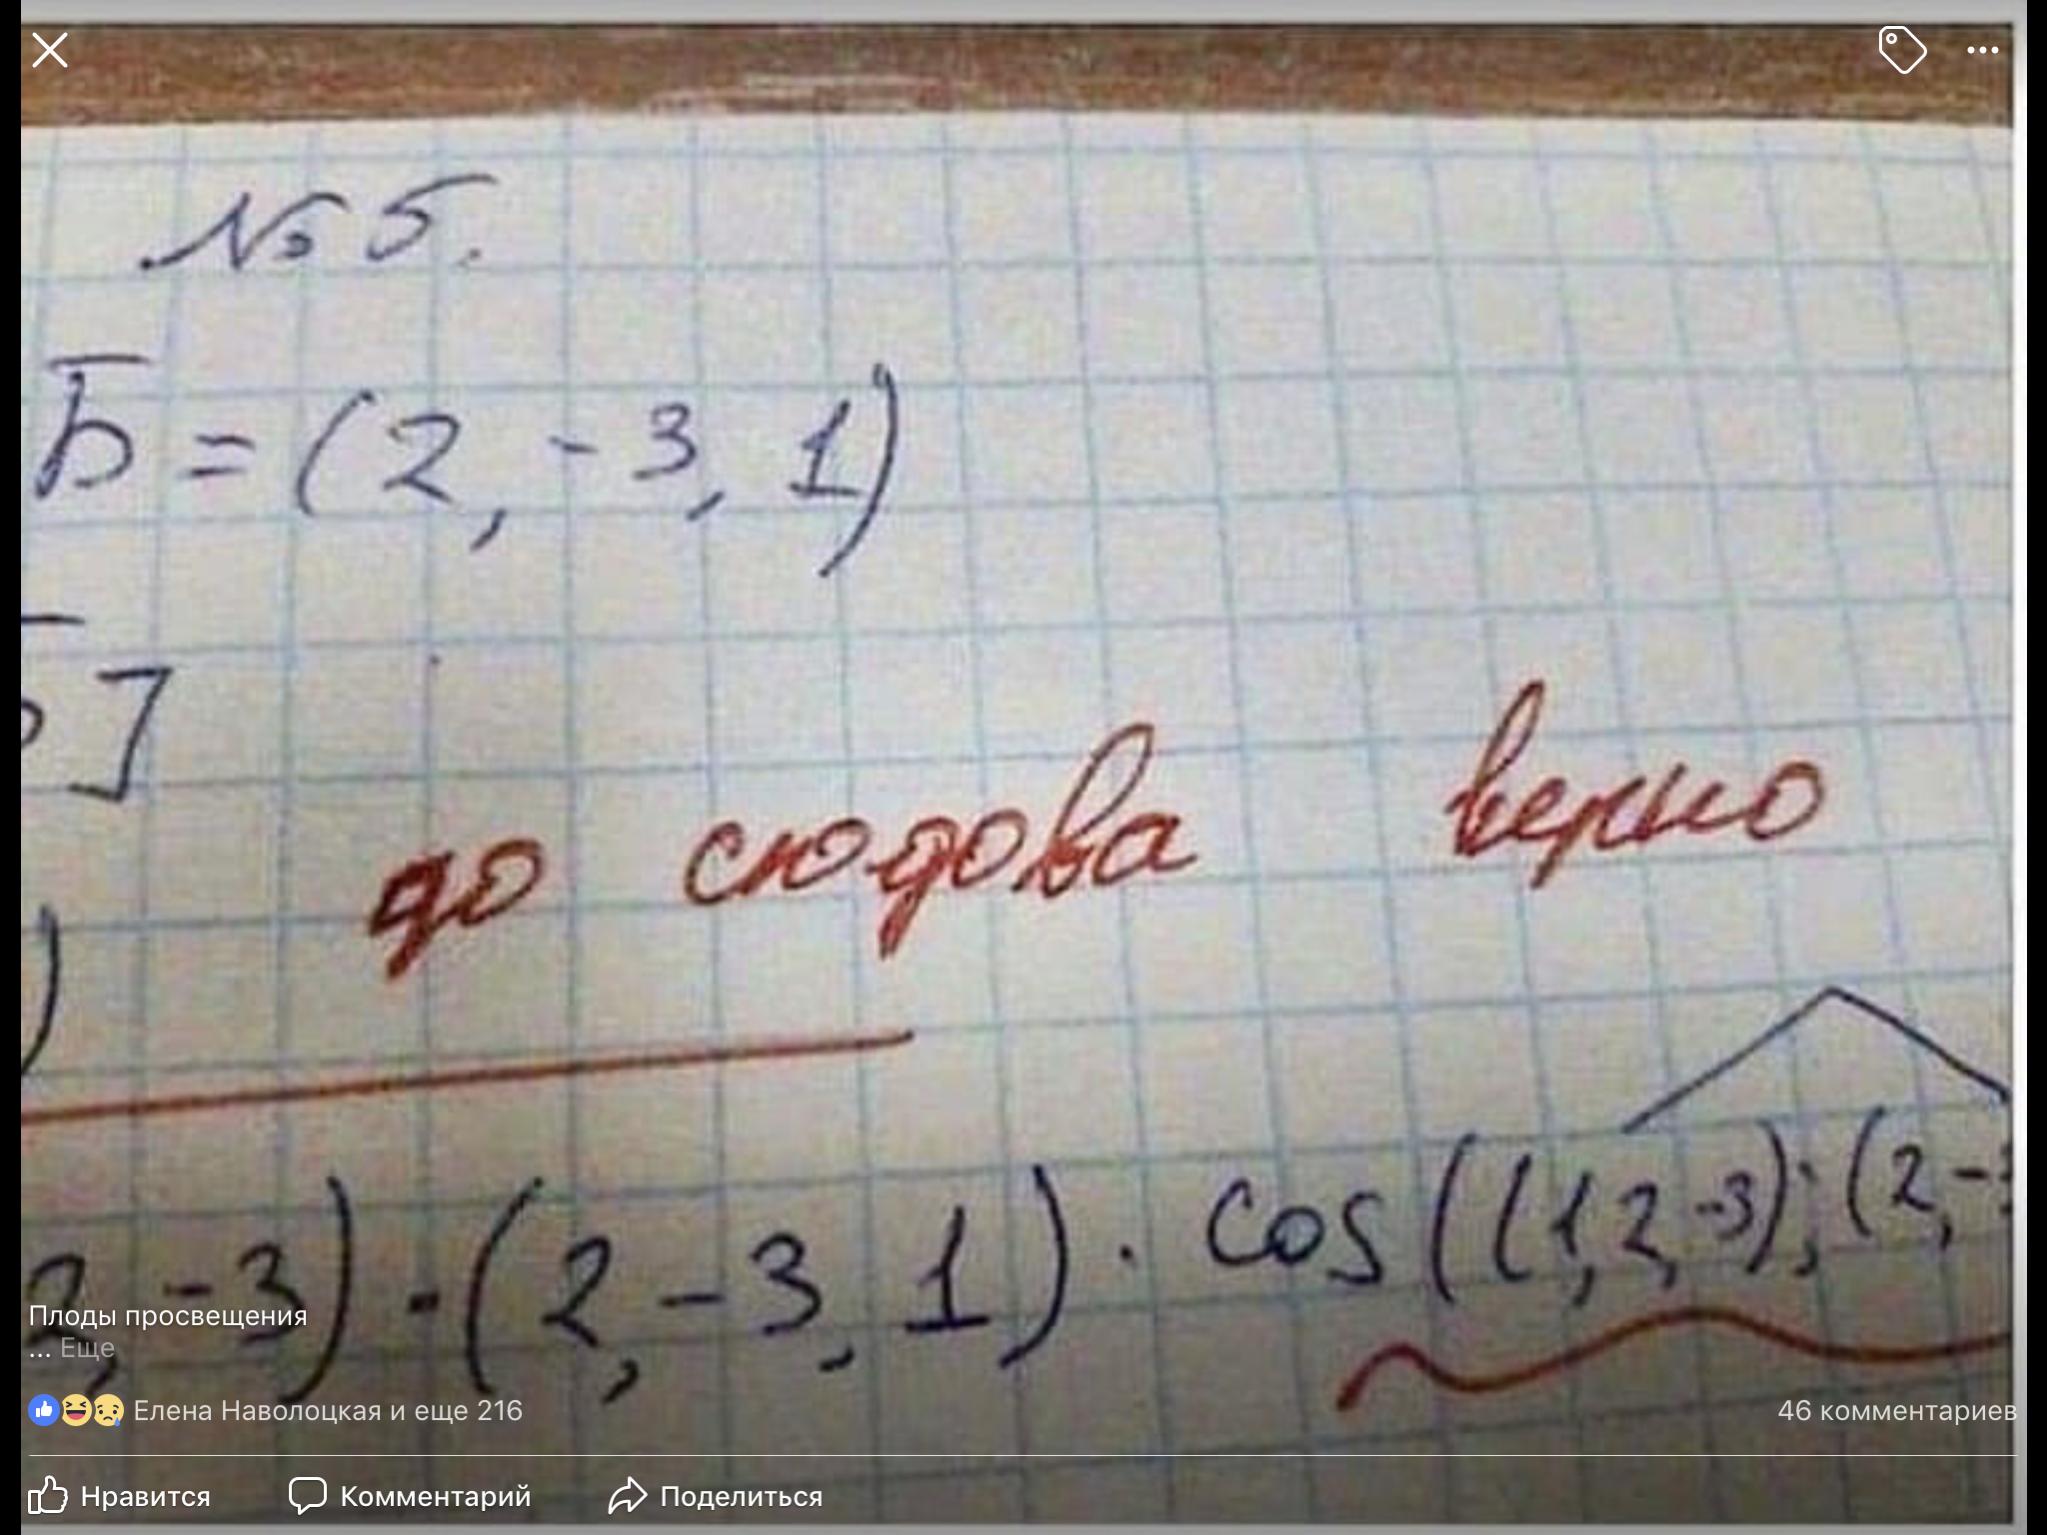 № 5.
b̅ = (2, -3, 1)
]
до сюдова верно
)
2, -3) · (2, -3, 1) · cos((1, 2, -3); (2, -3
Плоды просвещения
... Еще
Елена Наволоцкая и еще 216
46 комментариев
Нравится Комментарий Поделиться